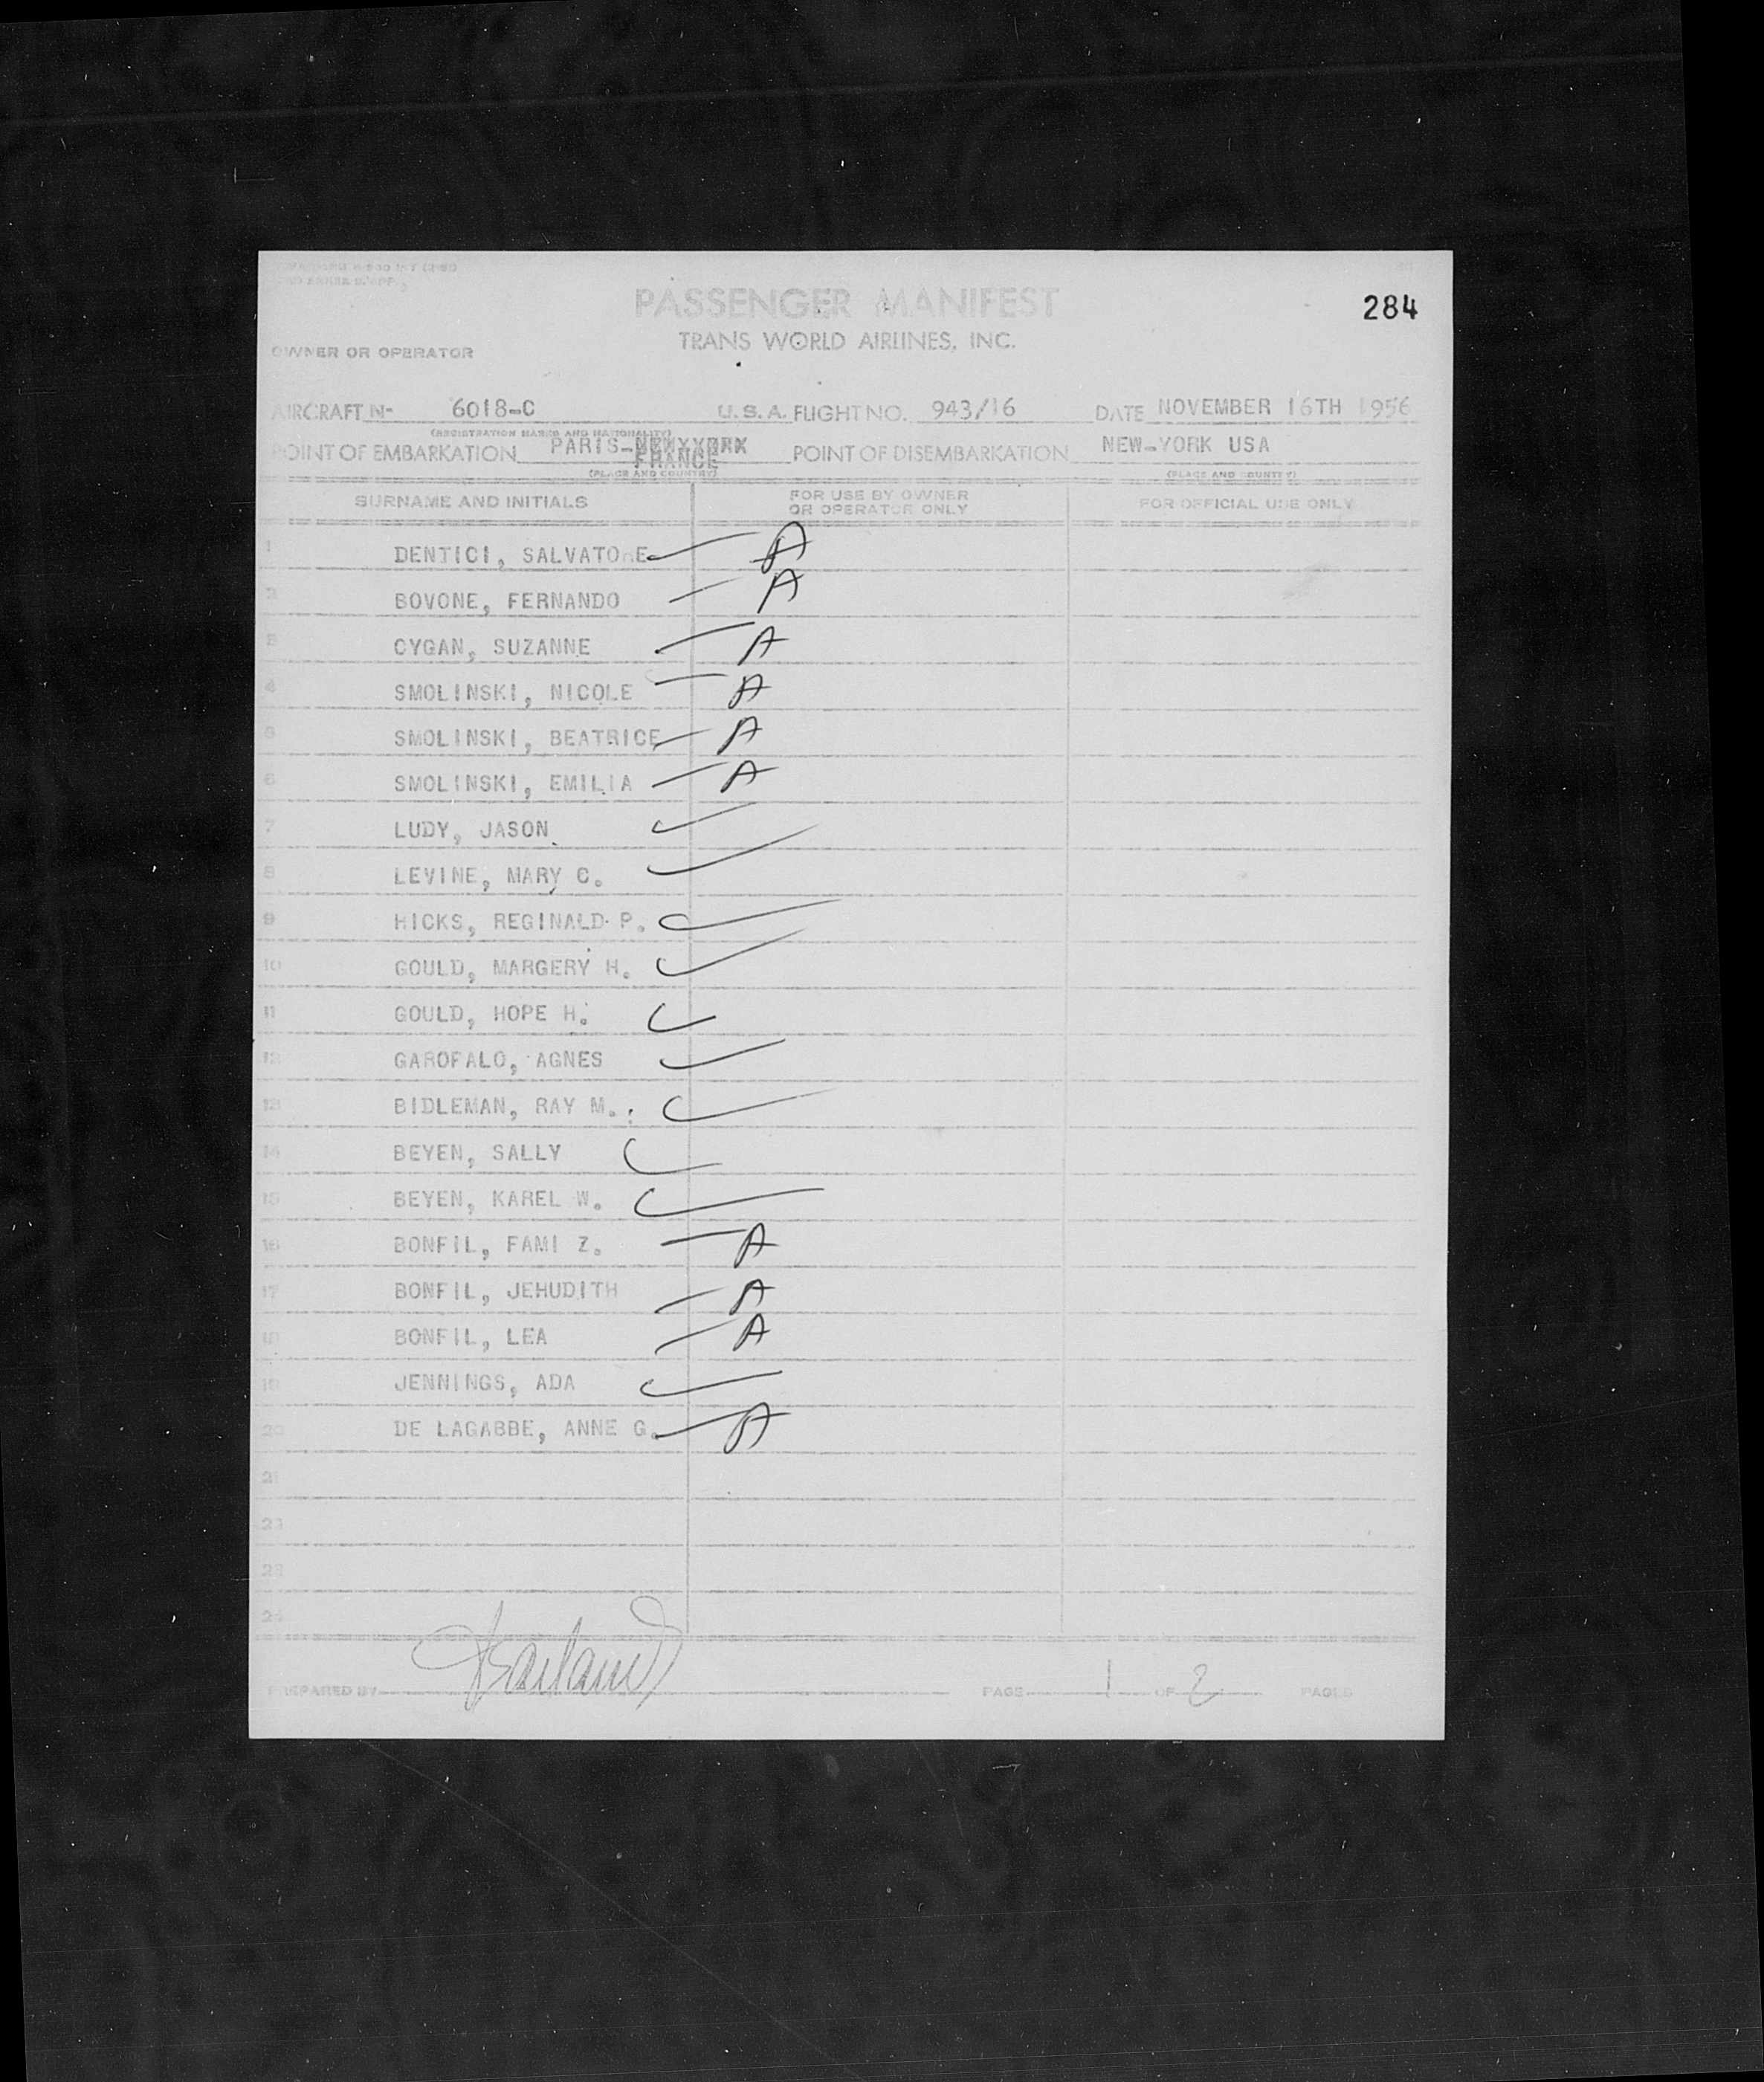 PASSENGER MANIFEST
284
TRANS WORLD AIRLINES, INC.
OWNER OR OPERATOR
AIRCRAFT N- 6018-C U.S.A. FLIGHT NO. 943/16 DATE NOVEMBER 16TH 1956
(REGISTRATION MARKS AND NATIONALITY)
POINT OF EMBARKATION PARIS- FRANCE POINT OF DISEMBARKATION NEW-YORK USA
(PLACE AND COUNTRY) (PLACE AND COUNTRY)
SURNAME AND INITIALS FOR USE BY OWNER OR OPERATOR ONLY FOR OFFICIAL USE ONLY
1 DENTICI, SALVATORE A
2 BOVONE, FERNANDO A
3 CYGAN, SUZANNE A
4 SMOLINSKI, NICOLE A
5 SMOLINSKI, BEATRICE A
6 SMOLINSKI, EMILIA A
7 LUDY, JASON
8 LEVINE, MARY C.
9 HICKS, REGINALD P.
10 GOULD, MARGERY H.
11 GOULD, HOPE H.
12 GAROFALO, AGNES
13 BIDLEMAN, RAY M.
14 BEYEN, SALLY
15 BEYEN, KAREL W.
16 BONFIL, FAMI Z. A
17 BONFIL, JEHUDITH A
18 BONFIL, LEA A
19 JENNINGS, ADA
20 DE LAGABBE, ANNE G. A
21
22
23
24
PREPARED BY PAGE 1 OF 2 PAGES